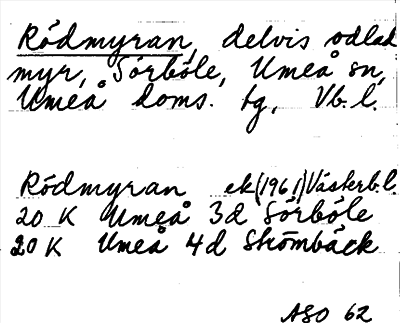 Rödmyran, delvis odlad
myr, Sörböle, Umeå sn,
Umeå doms. tg, Vb. l.
Rödmyran ek (1961) Västerb. l.
20 K Umeå 3d Sörböle
20 K Umeå 4d Skömbäck
ASO 62